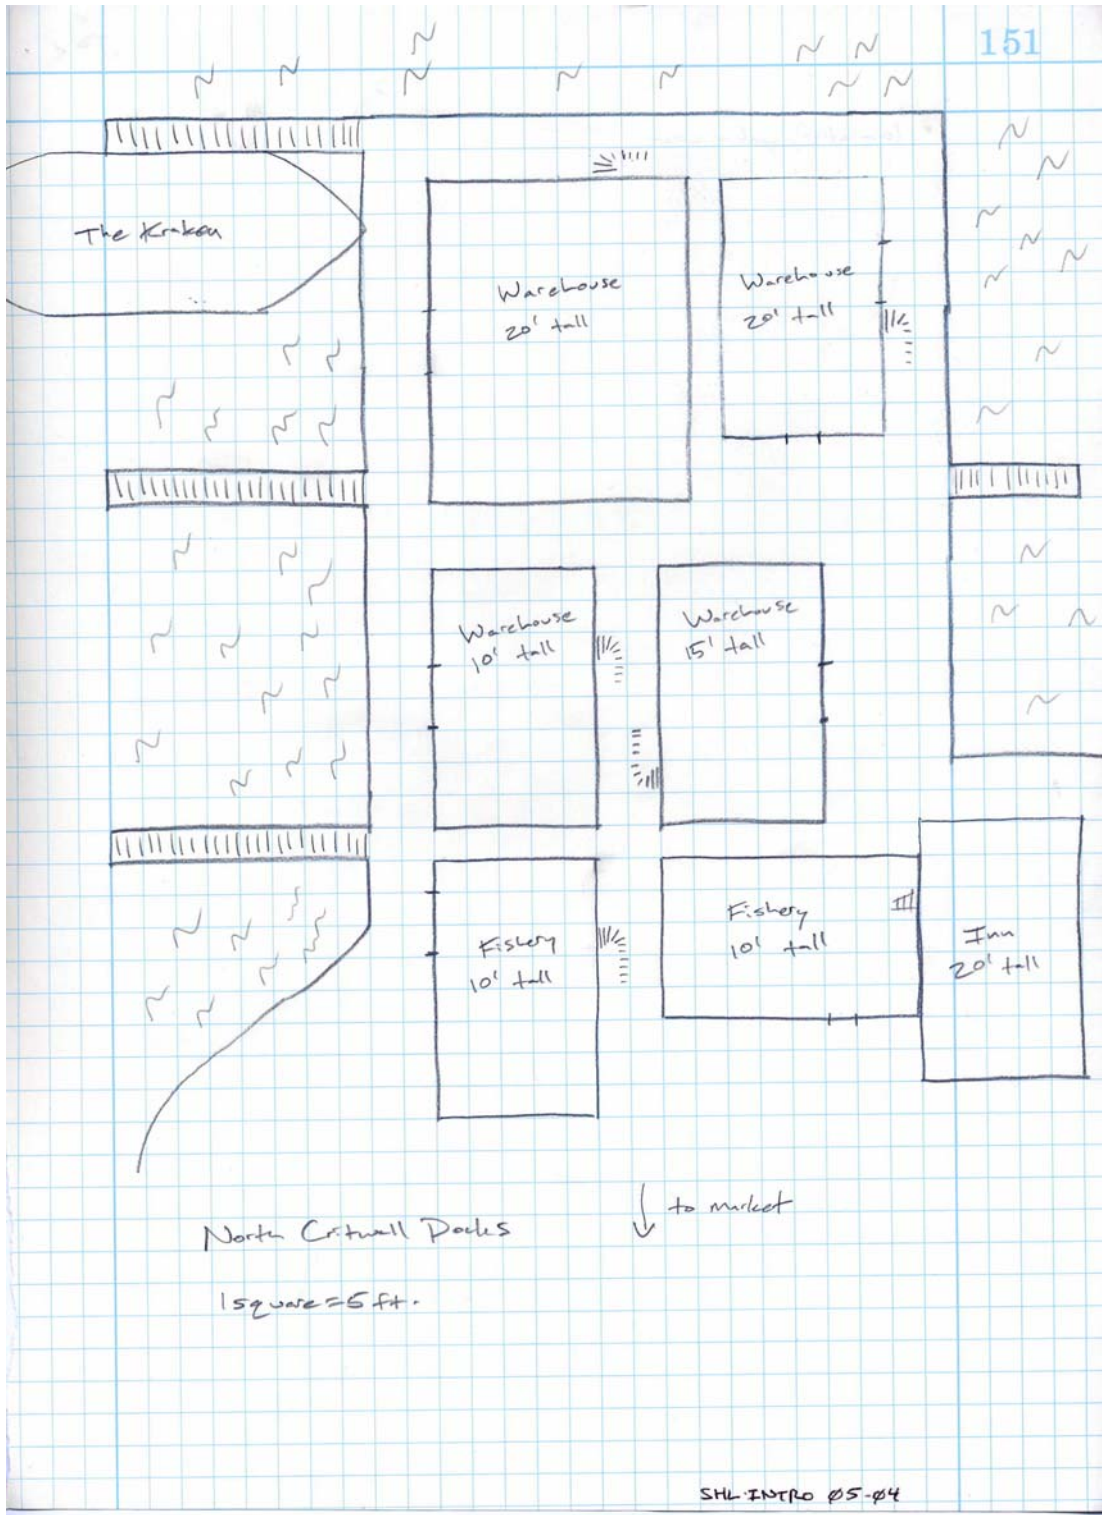 151
The Kraken
Warehouse
20' tall
Warehouse
20' tall
Warehouse
10' tall
Warehouse
15' tall
Fishery
10' tall
Fishery
10' tall
Inn
20' tall
to market
North Critwall Docks
1 square = 5 ft.
SHL·INTRO 05-04